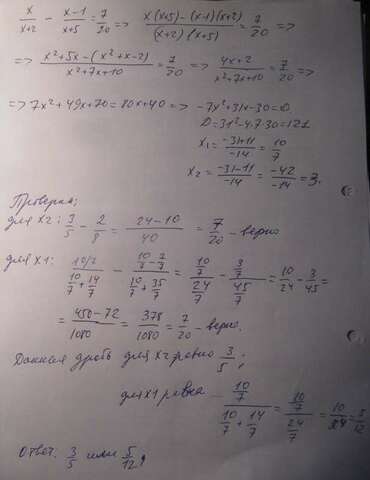 x/(x+2) - (x-1)/(x+5) = 7/20 => (x(x+5)-(x-1)(x+2))/((x+2)(x+5)) = 7/20 =>
=> (x²+5x-(x²+x-2))/(x²+7x+10) = 7/20 => (4x+2)/(x²+7x+10) = 7/20 =>
=> 7x²+49x+70 = 80x+40 => -7x²+31x-30=0
D=31²-4·7·30=121
x₁ = (-31+11)/-14 = 10/7
x₂ = (-31-11)/-14 = -42/-14 = 3.
Проверка:
для x2: 3/5 - 2/8 = (24-10)/40 = 7/20 - верно
для x1: (10/7)/(10/7+14/7) - (10/7-7/7)/(10/7+35/7) = (10/7)/(24/7) - (3/7)/(45/7) = 10/24 - 3/45 =
= (450-72)/1080 = 378/1080 = 7/20 - верно.
Данная дробь для x2 равно 3/5;
для x1 равна (10/7)/(10/7+14/7) = (10/7)/(24/7) = 10/24 = 5/12
Ответ: 3/5 или 5/12.